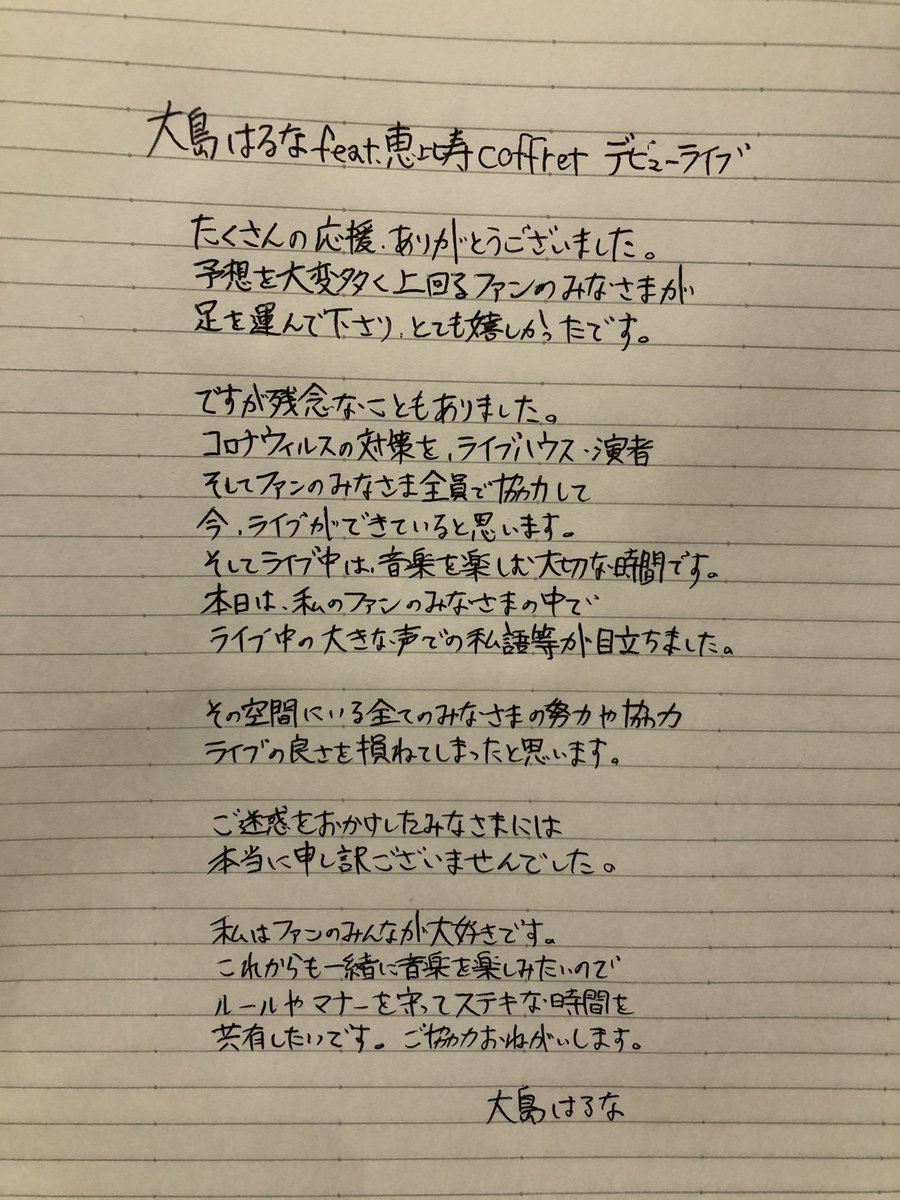 大島はるなfeat.恵比寿coffret デビューライブ
たくさんの応援、ありがとうございました。
予想を大変多く上回るファンのみなさまが
足を運んで下さり、とても嬉しかったです。
ですが残念なこともありました。
コロナウィルスの対策を、ライブハウス・演者
そしてファンのみなさま全員で協力して
今、ライブができていると思います。
そしてライブ中は、音楽を楽しむ大切な時間です。
本日は、私のファンのみなさまの中で
ライブ中の大きな声での私語等が目立ちました。
その空間にいる全てのみなさまの努力や協力
ライブの良さを損ねてしまったと思います。
ご迷惑をおかけしたみなさまには
本当に申し訳ございませんでした。
私はファンのみんなが大好きです。
これからも一緒に音楽を楽しみたいので
ルールやマナーを守ってステキな時間を
共有したいです。ご協力おねがいします。
大島はるな